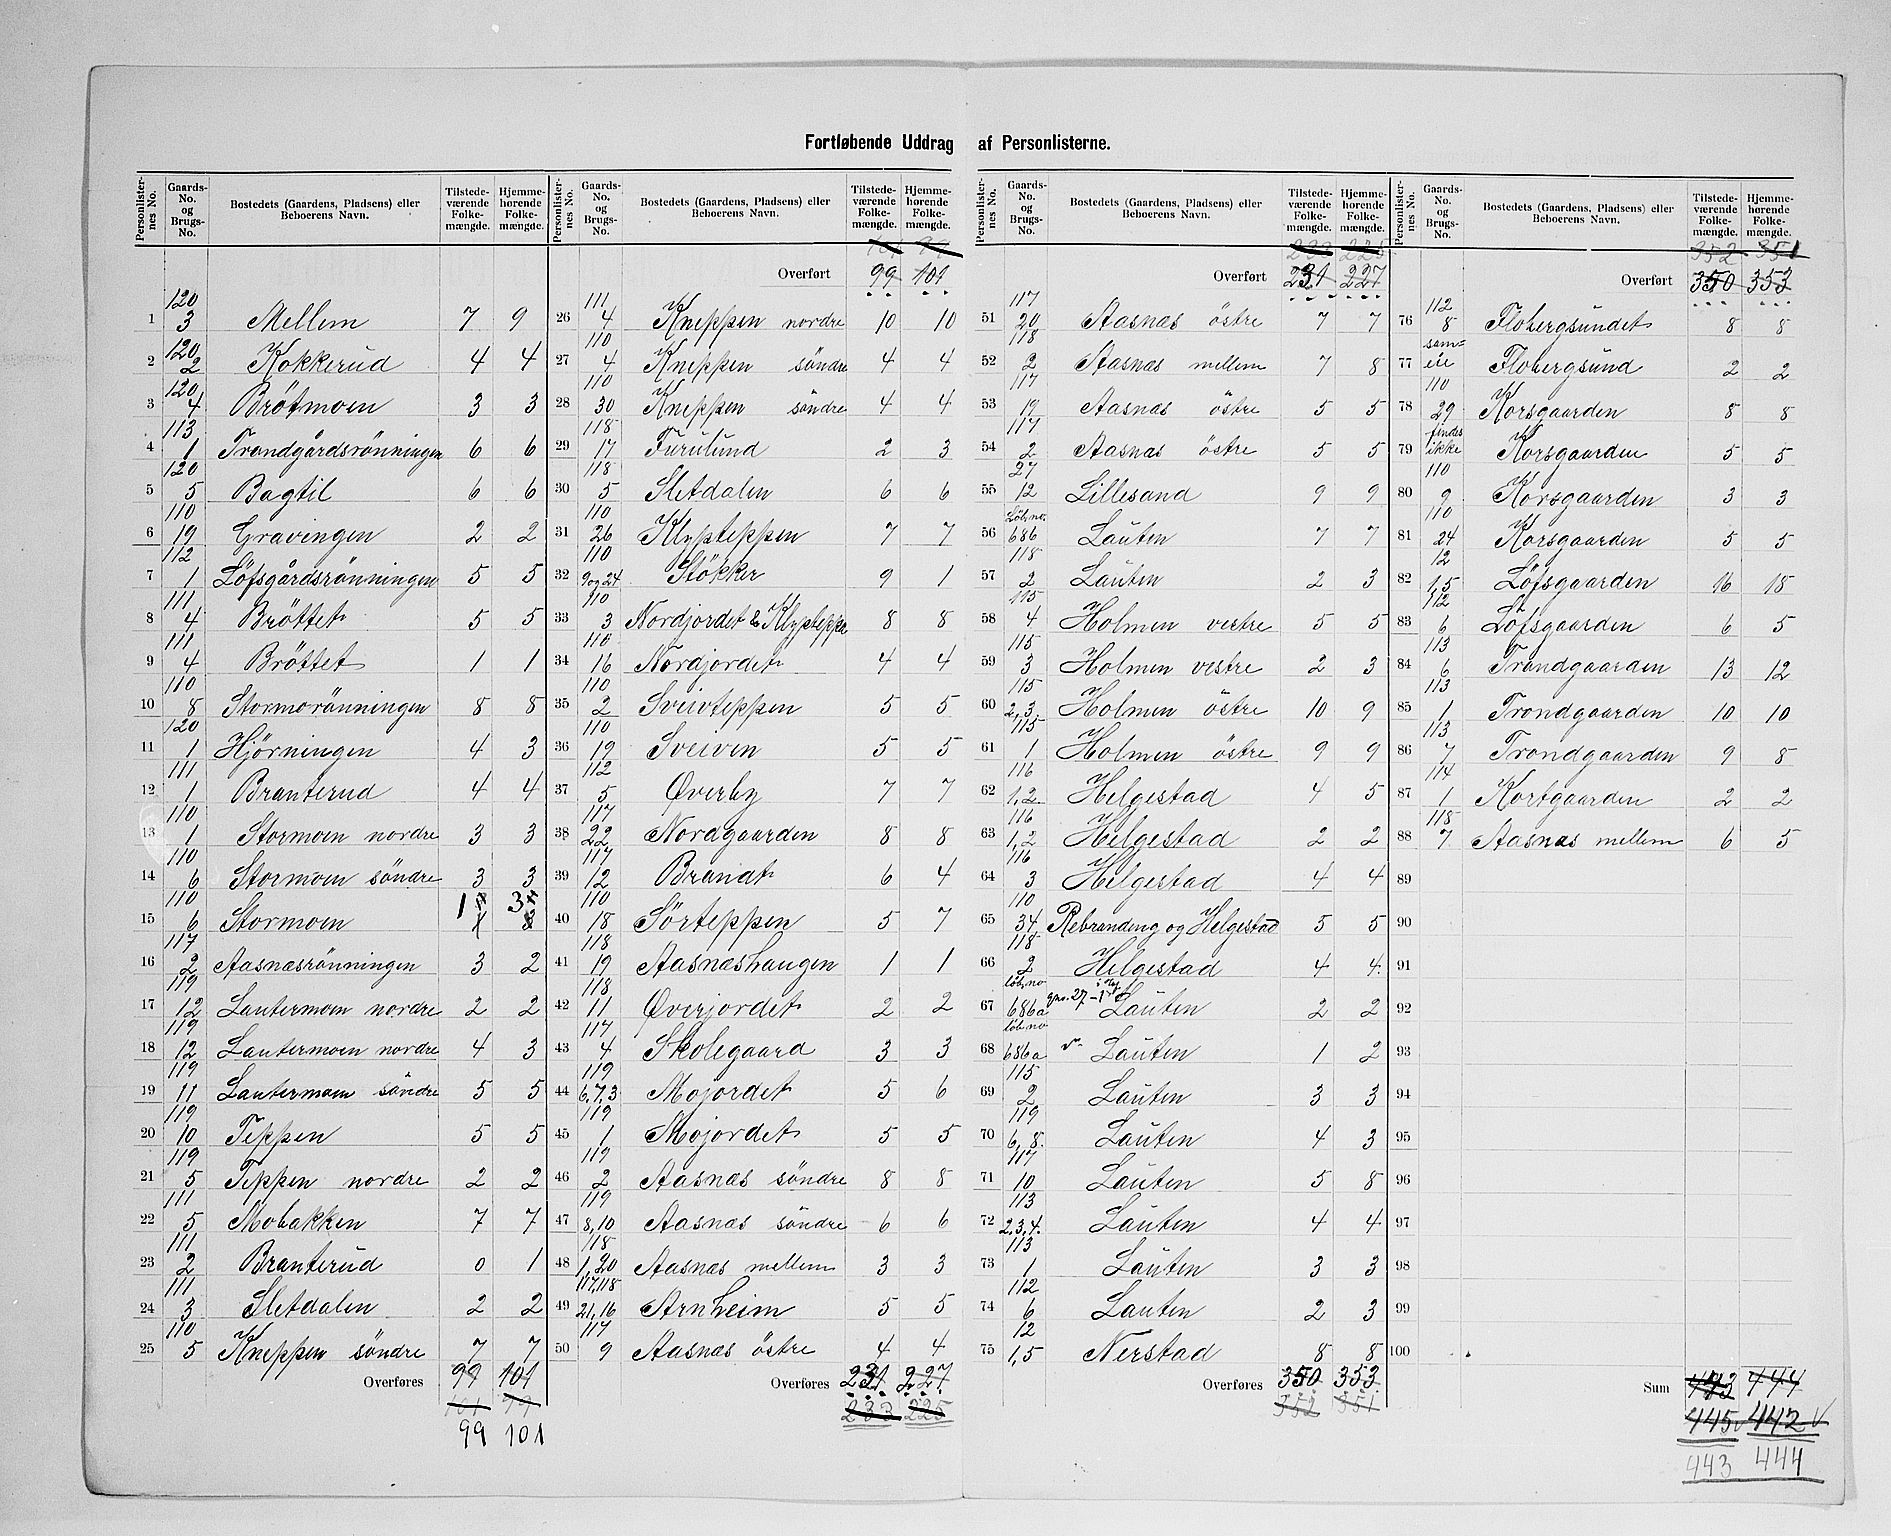 Fortløbende Uddrag af Personlisterne.
Personlister-nes No. Gaards-No. og Brugs-No. Bostedets (Gaardens, Pladsens) eller Beboerens Navn. Tilstede-værende Folke-mængde. Hjemme-hørende Folke-mængde.
1 120 3 Mellem 7 9
2 120 2 Kokkerud 4 4
3 120 4 Brötmoen 3 3
4 113 1 Trondgårdsrönningen 6 6
5 120 5 Bagtil 6 6
6 110 19 Gravingen 2 2
7 112 1 Löfsgårdsrönningen 5 5
8 111 4 Bröttet 5 5
9 111 4 Bröttet 1 1
10 110 8 Stormorönningen 8 8
11 120 1 Hjörningen 4 3
12 111 1 Branterud 4 4
13 110 1 Stormoen nordre 3 3
14 110 6 Stormoen söndre 3 3
15 110 6 Stormoen 1 3
16 117 2 Aasnæsrönningen 3 2
17 119 12 Lautermoen nordre 2 2
18 119 12 Lautermoen nordre 4 3
19 119 11 Lautermoen söndre 5 5
20 119 10 Teppen 5 5
21 119 5 Teppen nordre 2 2
22 111 5 Mobakken 7 7
23 111 2 Branterud 0 1
24 111 3 Sletdalen 2 2
25 110 5 Kneppen söndre 7 7
Overføres 99 101
101 99
99 101
Personlister-nes No. Gaards-No. og Brugs-No. Bostedets (Gaardens, Pladsens) eller Beboerens Navn. Tilstede-værende Folke-mængde. Hjemme-hørende Folke-mængde.
101 99
Overført 99 101
26 111 4 Kneppen nordre 10 10
27 110 4 Kneppen söndre 4 4
28 110 30 Kneppen söndre 4 4
29 118 17 Furulund 2 3
30 118 5 Sletdalen 6 6
31 110 26 Klypteppen 7 7
32 110 9 og 24 Stökker 9 1
33 110 3 Nordjordet & Klypteppe 8 8
34 110 16 Nordjordet 4 4
35 110 2 Sveivteppen 5 5
36 110 19 Sveiven 5 5
37 112 5 Øverby 7 7
38 117 22 Nordgaarden 8 8
39 117 12 Brandt 6 4
40 110 18 Sörteppen 5 7
41 118 19 Aasnæshaugen 1 1
42 118 11 Øverjordet 2 2
43 117 4 Skolegaard 3 3
44 119 6,7,3 Mojordet 5 6
45 119 1 Mojordet 5 5
46 119 2 Aasnæs söndre 8 8
47 119 8,10 Aasnæs söndre 6 6
48 118 1,20 Aasnæs mellem 3 3
49 117,118 21,16 Arnheim 5 5
50 117 9 Aasnæs östre 4 4
Overføres 231 227
233 225
Personlister-nes No. Gaards-No. og Brugs-No. Bostedets (Gaardens, Pladsens) eller Beboerens Navn. Tilstede-værende Folke-mængde. Hjemme-hørende Folke-mængde.
233 225
Overført 231 227
51 117 20 Aasnæs östre 7 7
52 118 2 Aasnæs mellem 7 8
53 117 19 Aasnæs östre 5 5
54 117 2 Aasnæs östre 5 5
55 27 12 Lillesand 9 9
56 Löb.no. 686 Lauten 7 7
57 118 2 Lauten 2 3
58 115 4 Holmen vestre 5 5
59 115 3 Holmen vestre 2 3
60 115 2,3 Holmen östre 10 9
61 115 1 Holmen östre 9 9
62 116 1,2 Helgestad 4 5
63 116 1,2 Helgestad 2 2
64 116 3 Helgestad 4 4
65 110 34 Rebranding og Helgestad 5 5
66 118 2 Helgestad 4 4
67 löb.no 686a gno. 27-1 Lauten 2 2
68 löb.no 686a Lauten 1 2
69 115 2 Lauten 3 3
70 119 6,8 Lauten 4 3
71 117 10 Lauten 5 8
72 113 2,3,4. Lauten 4 4
73 113 1 Lauten 3 3
74 112 6 Lauten 2 3
75 12 1,5 Nerstad 8 8
Overføres 350 353
352 351
Personlister-nes No. Gaards-No. og Brugs-No. Bostedets (Gaardens, Pladsens) eller Beboerens Navn. Tilstede-værende Folke-mængde. Hjemme-hørende Folke-mængde.
352 351
Overført 350 353
76 112 8 Flobergsundet 8 8
77 sam=eie Flobergsund 2 2
78 110 29 Korsgaarden 8 8
79 findes ikke Korsgaarden 5 5
80 110 9 Korsgaarden 3 3
81 110 24 Korsgaarden 5 5
82 12 1,5 Löfsgaarden 16 18
83 112 6 Löfsgaarden 6 5
84 113 6 Trondgaarden 13 12
85 113 1 Trondgaarden 10 10
86 113 7 Trondgaarden 9 8
87 114 1 Kortgaarden 2 2
88 118 7 Aasnæs mellem 6 5
89
90
91
92
93
94
95
96
97
98
99
100
Sum 443 444
445 442
443 444